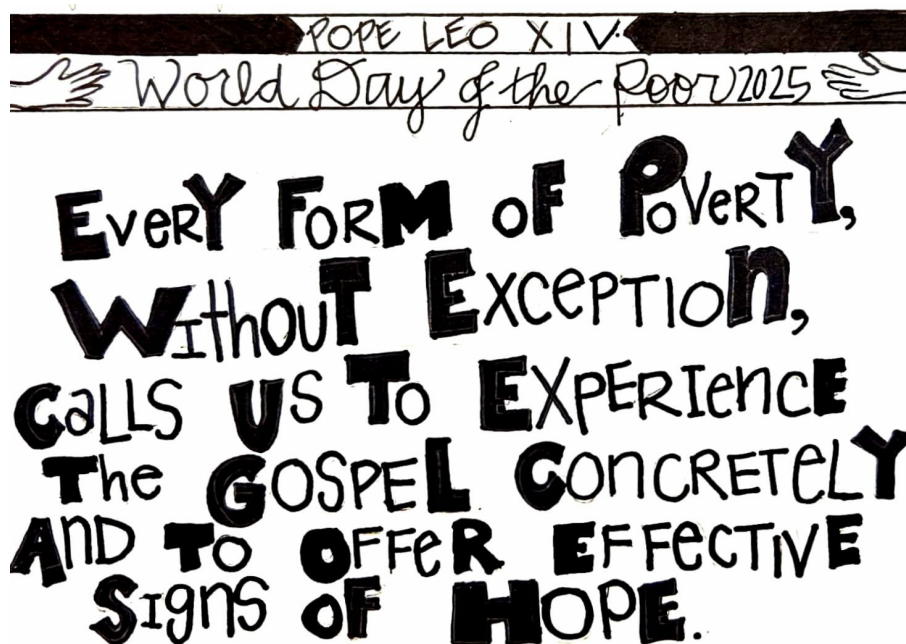 POPE LEO XIV:
World Day of the Poor 2025
EverY FORM oF PoVerTY,
WIthouT ExcepTIon,
CaLLS US To EXPERIencE
The GOSPEL CONCRETeLY
AnD To OFFeR EFFecTIVE
SIgnS OF HOPE.